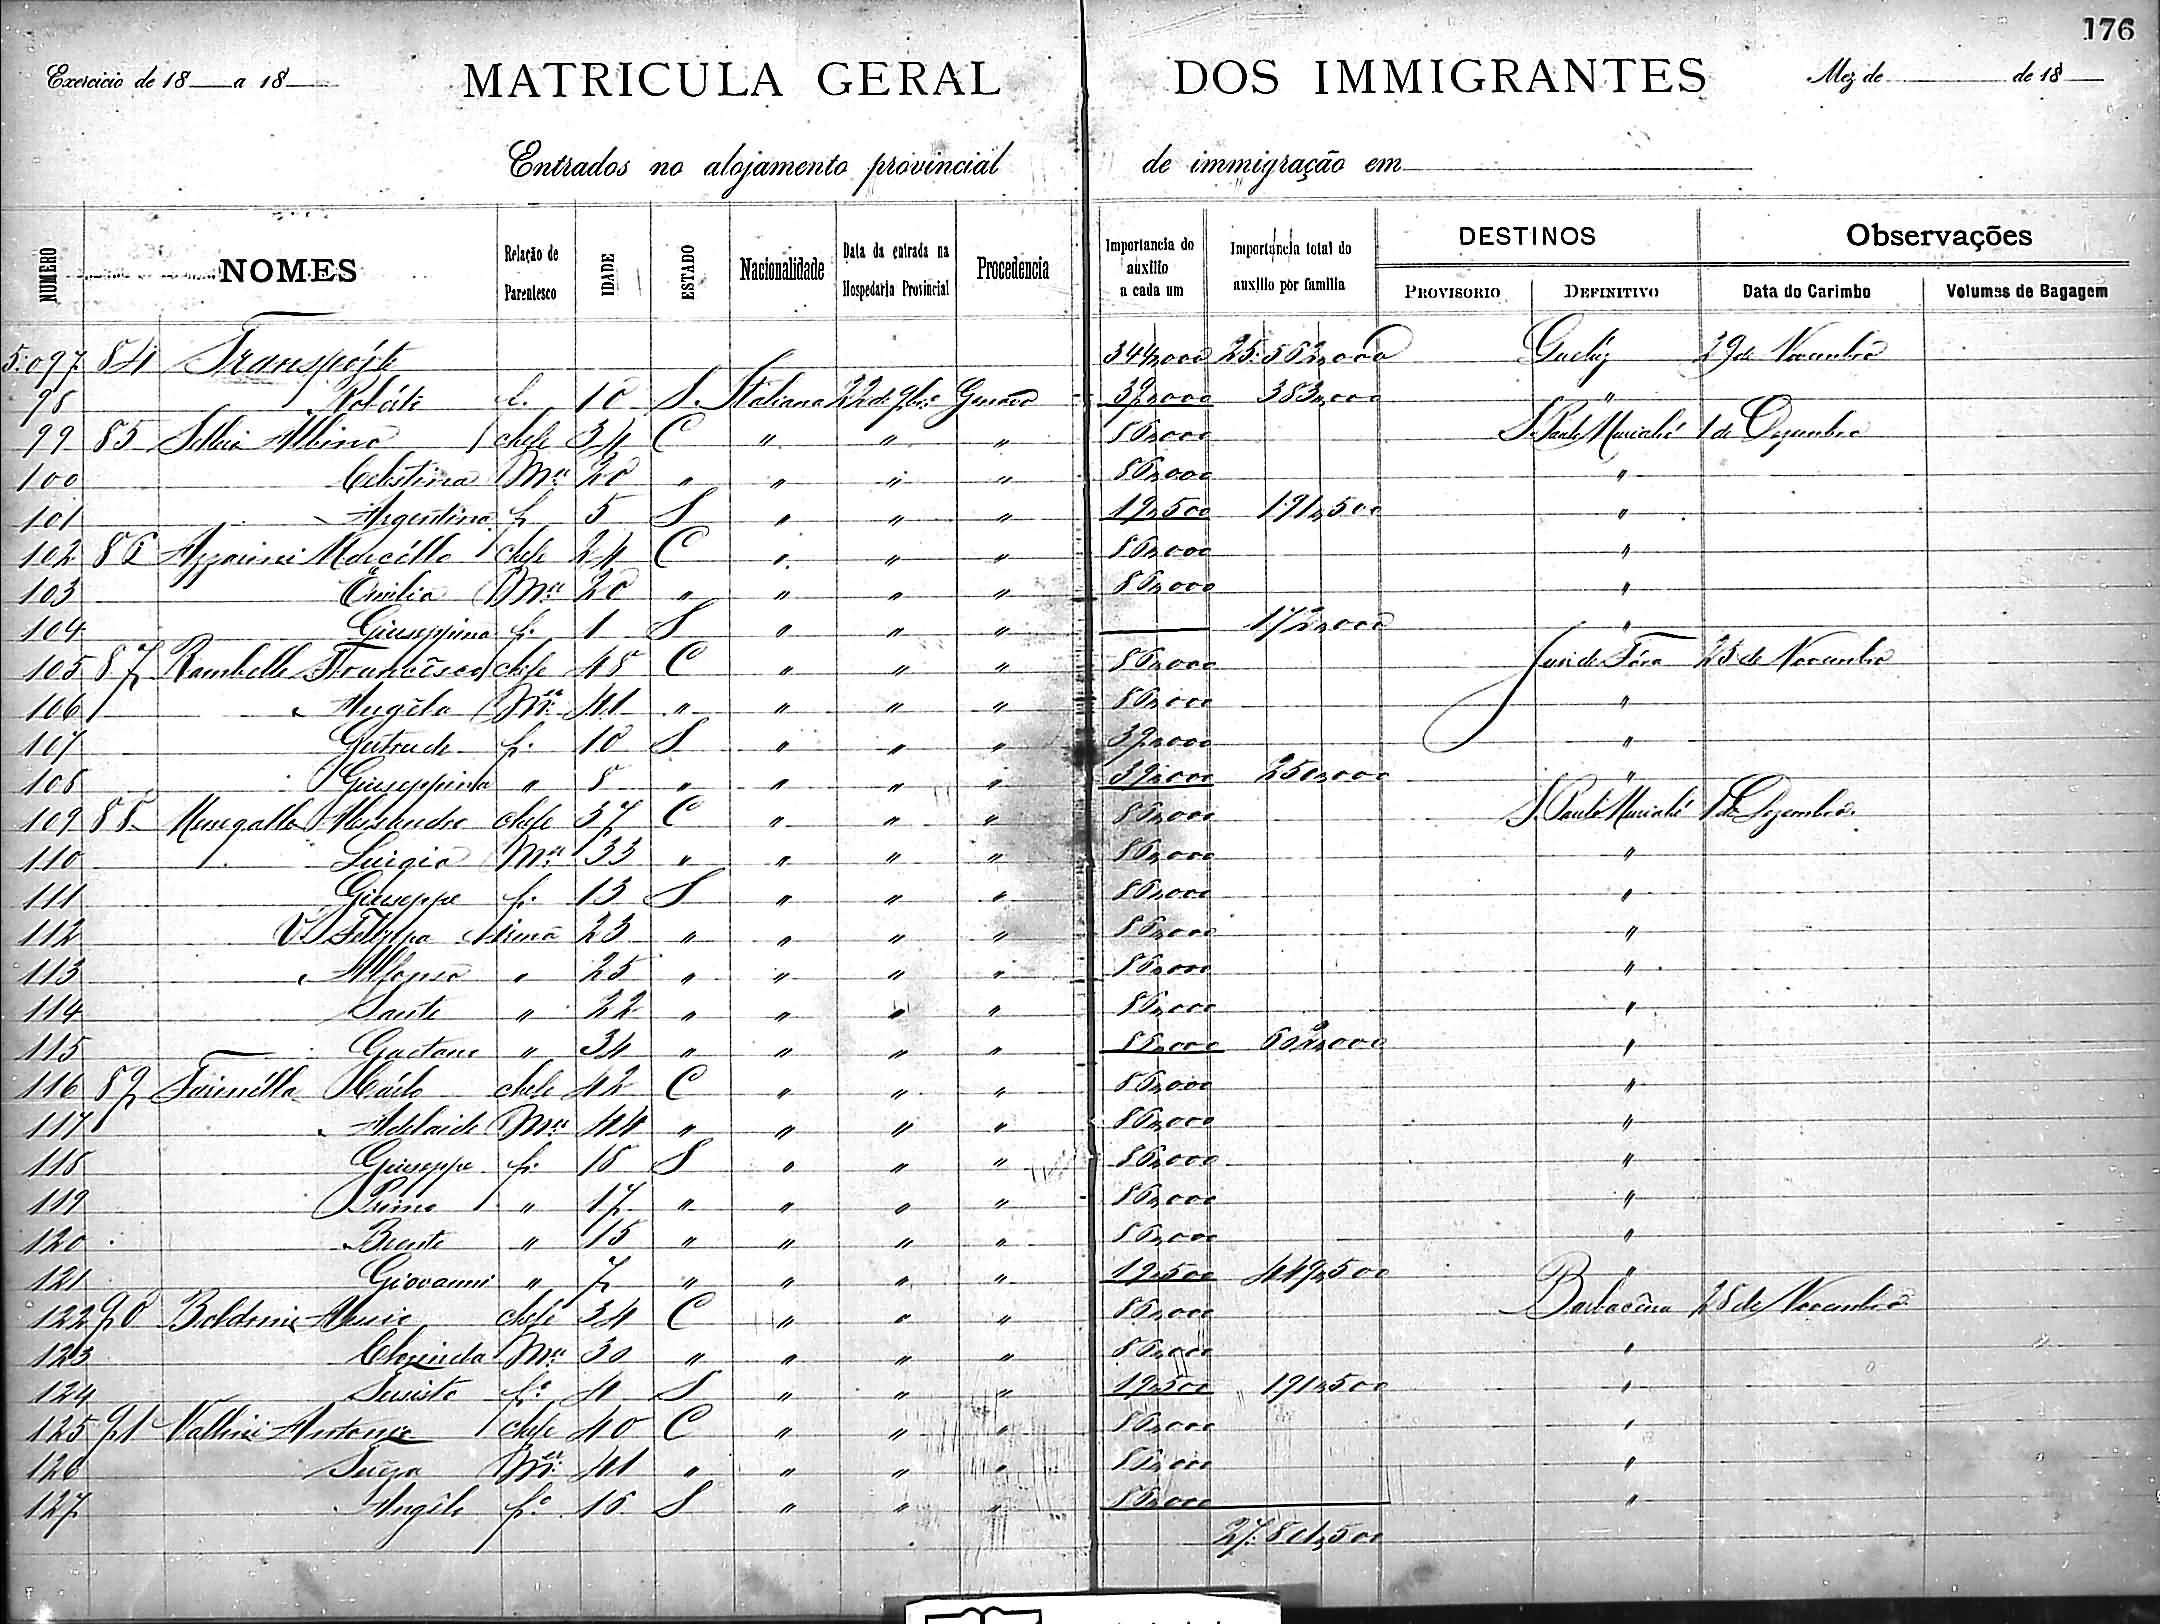 176
Exercicio de 18 a 18 MATRICULA GERAL DOS IMMIGRANTES Mez de de 18
Entrados no alojamento provincial de immigração em
NUMERO NOMES Relação de Parentesco IDADE ESTADO Nacionalidade Data da entrada na Hospedaria Provincial Procedencia Importancia do auxilio a cada um Importancia total do auxilio por familia DESTINOS PROVISORIO DEFINITIVO Observações Data do Carimbo Volumes de Bagagem
5.097 84 Transpórte 344,000 25.562,000 29 de Novembro
98 f. 10 S. Italiana 22 de 9bro Genova 39,000 383,000 "
99 85 Albino chefe 34 C " " " 86,000 S. Paulo Muriahé 1 de Dezembro
100 Celestina Mer 28 " " " " 86,000 "
101 Argentina f. 5 S " " " 19,500 191,500 "
102 86 Marcéllo chefe 24 C " " " 86,000 "
103 Emilia Mer 20 " " " " 86,000 "
104 Giuseppina f. 1 S " " " 172,000 "
105 87 Rambelli Francesco chefe 48 C " " " 86,000 Juiz de Fóra 25 de Novembro
106 Angéla Mer 41 " " " " 86,000 "
107 Gertrude f. 10 S " " " 39,000 "
108 Giuseppina " 8 " " " " 39,000 250,000 "
109 88 Menegatto Alessandro chefe 37 C " " " 86,000 S. Paulo Muriahé 1 de Dezembro
110 Luigia Mer 33 " " " " 86,000 "
111 Giuseppe f. 13 S " " " 86,000 "
112 Filippa irmã 23 " " " " 86,000 "
113 Alfonso " 25 " " " " 86,000 "
114 Sante " 22 " " " " 86,000 "
115 Gaetano " 34 " " " " 86,000 602,000 "
116 89 Carlo chefe 42 C " " " 86,000 "
117 Adelaide Mer 44 " " " " 86,000 "
118 Giuseppe f. 18 S " " " 86,000 "
119 Primo " 17 " " " " 86,000 "
120 " 15 " " " " 86,000 "
121 Giovanni " 7 " " " " 19,500 449,500 "
122 90 Boldrini chefe 34 C " " " 86,000 Barbacena 28 de Novembro
123 Clorinda Mer 30 " " " " 86,000 "
124 f.o 4 S " " " 19,500 191,500 "
125 91 Vallini Antonio chefe 40 C " " " 86,000 "
126 Mer 41 " " " " 86,000 "
127 Angélo f.o 16 S " " " 86,000 "
27.801,500